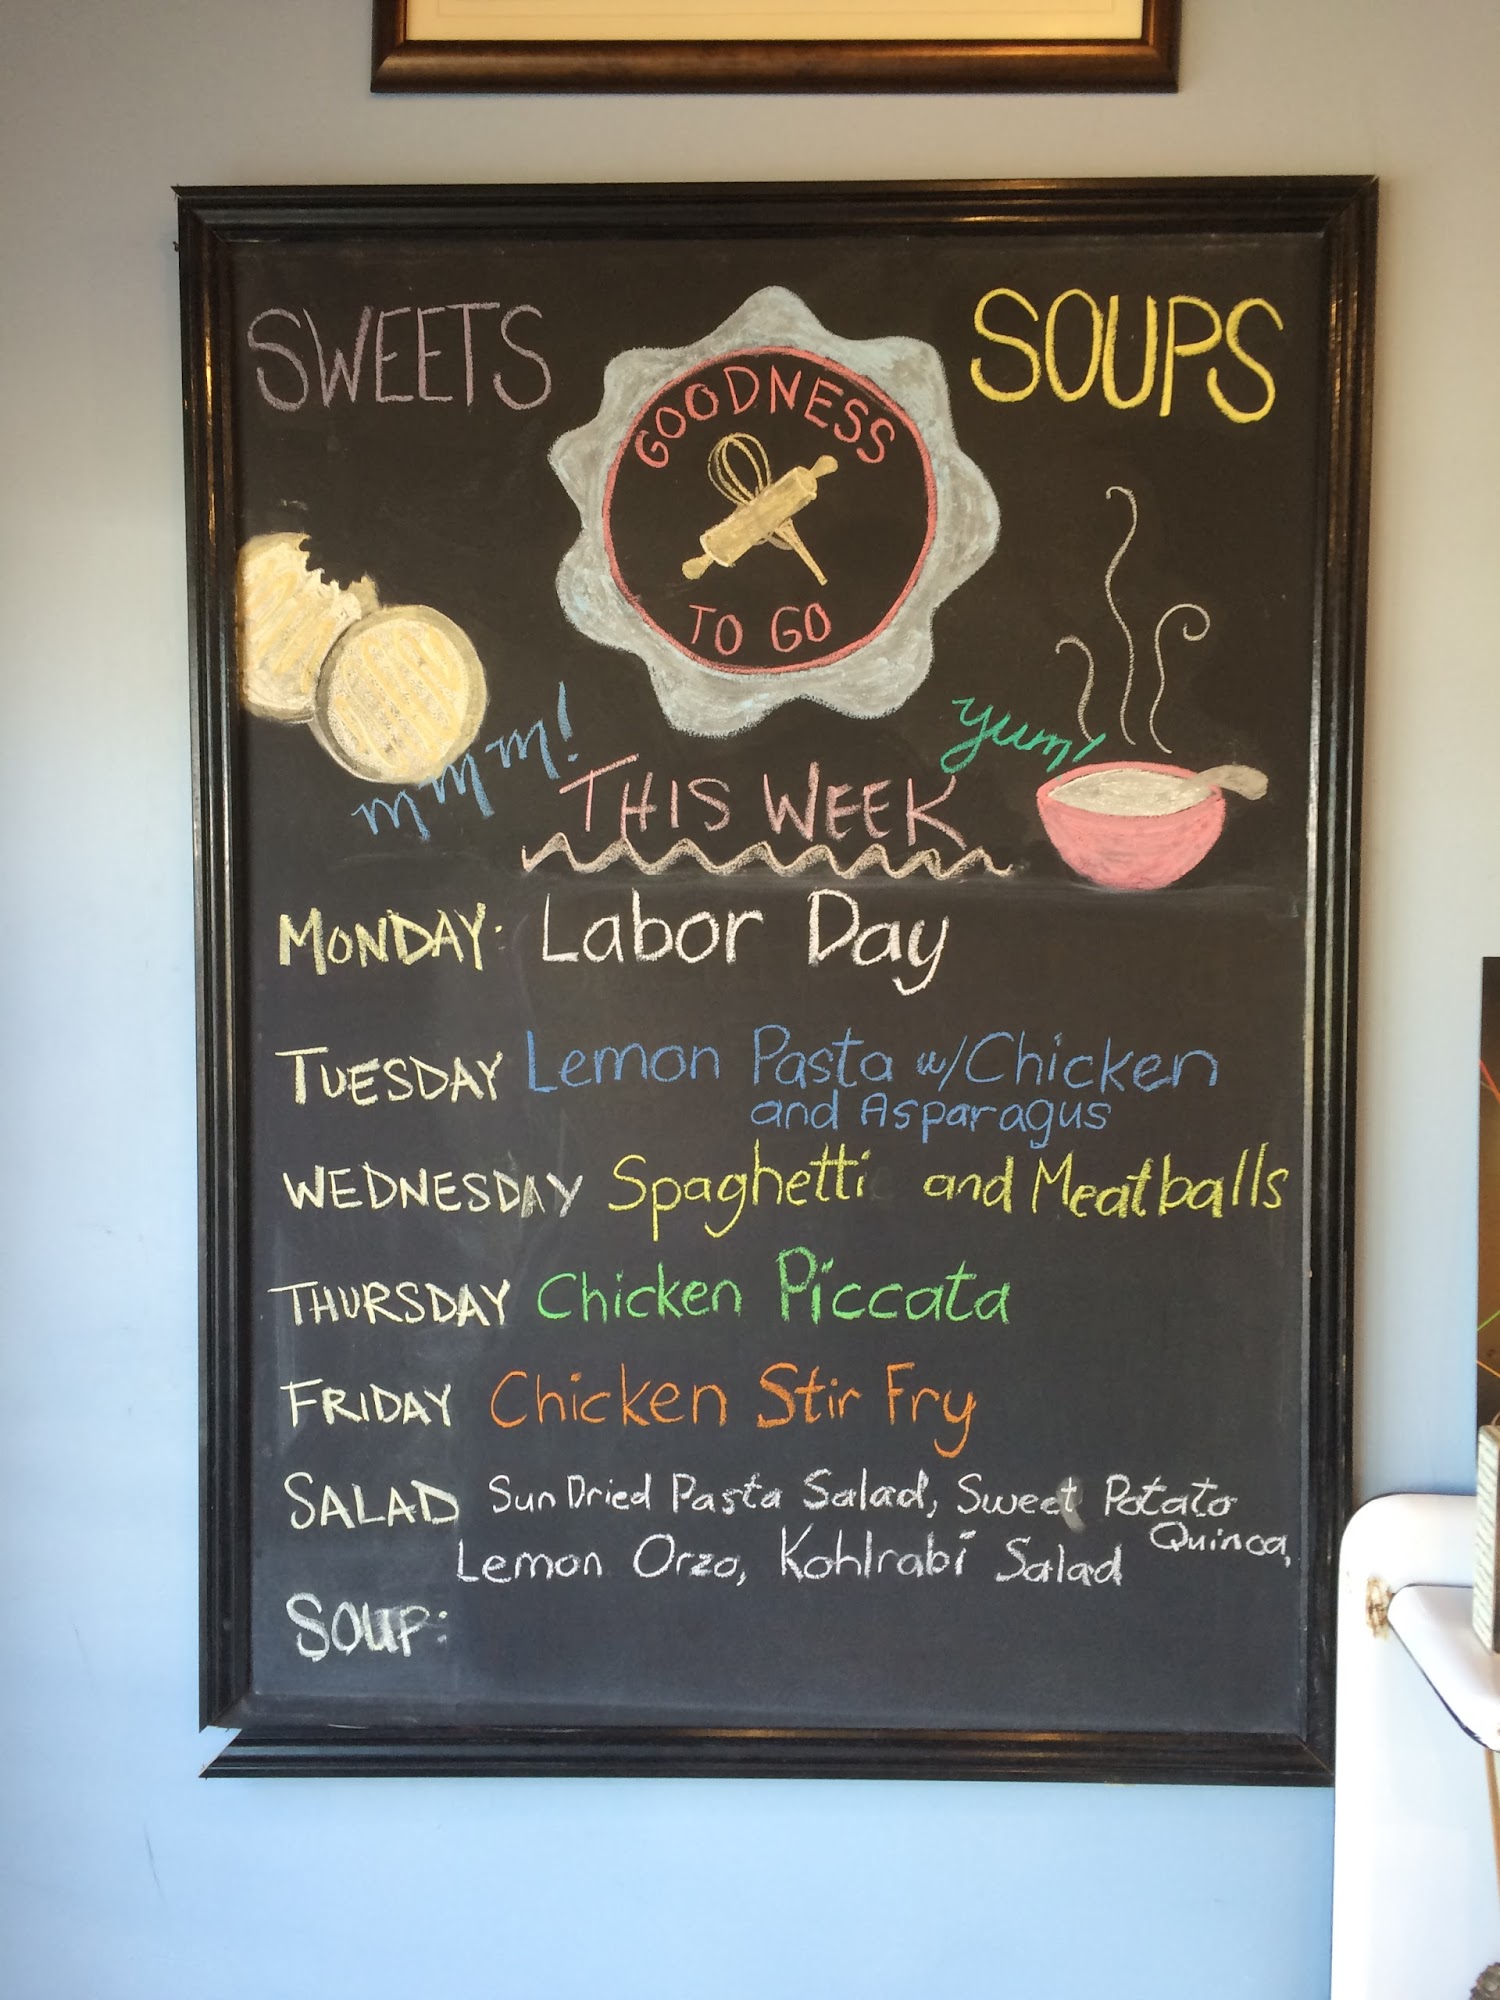 SWEETS
GOODNESS
TO GO
SOUPS
mmmm!
yum!
THIS WEEK
MONDAY: Labor Day
TUESDAY Lemon Pasta w/Chicken
and Asparagus
WEDNESDAY Spaghetti and Meatballs
THURSDAY Chicken Piccata
FRIDAY Chicken Stir Fry
SALAD Sun Dried Pasta Salad, Sweet Potato
Quinoa,
Lemon Orzo, Kohlrabi Salad
SOUP: